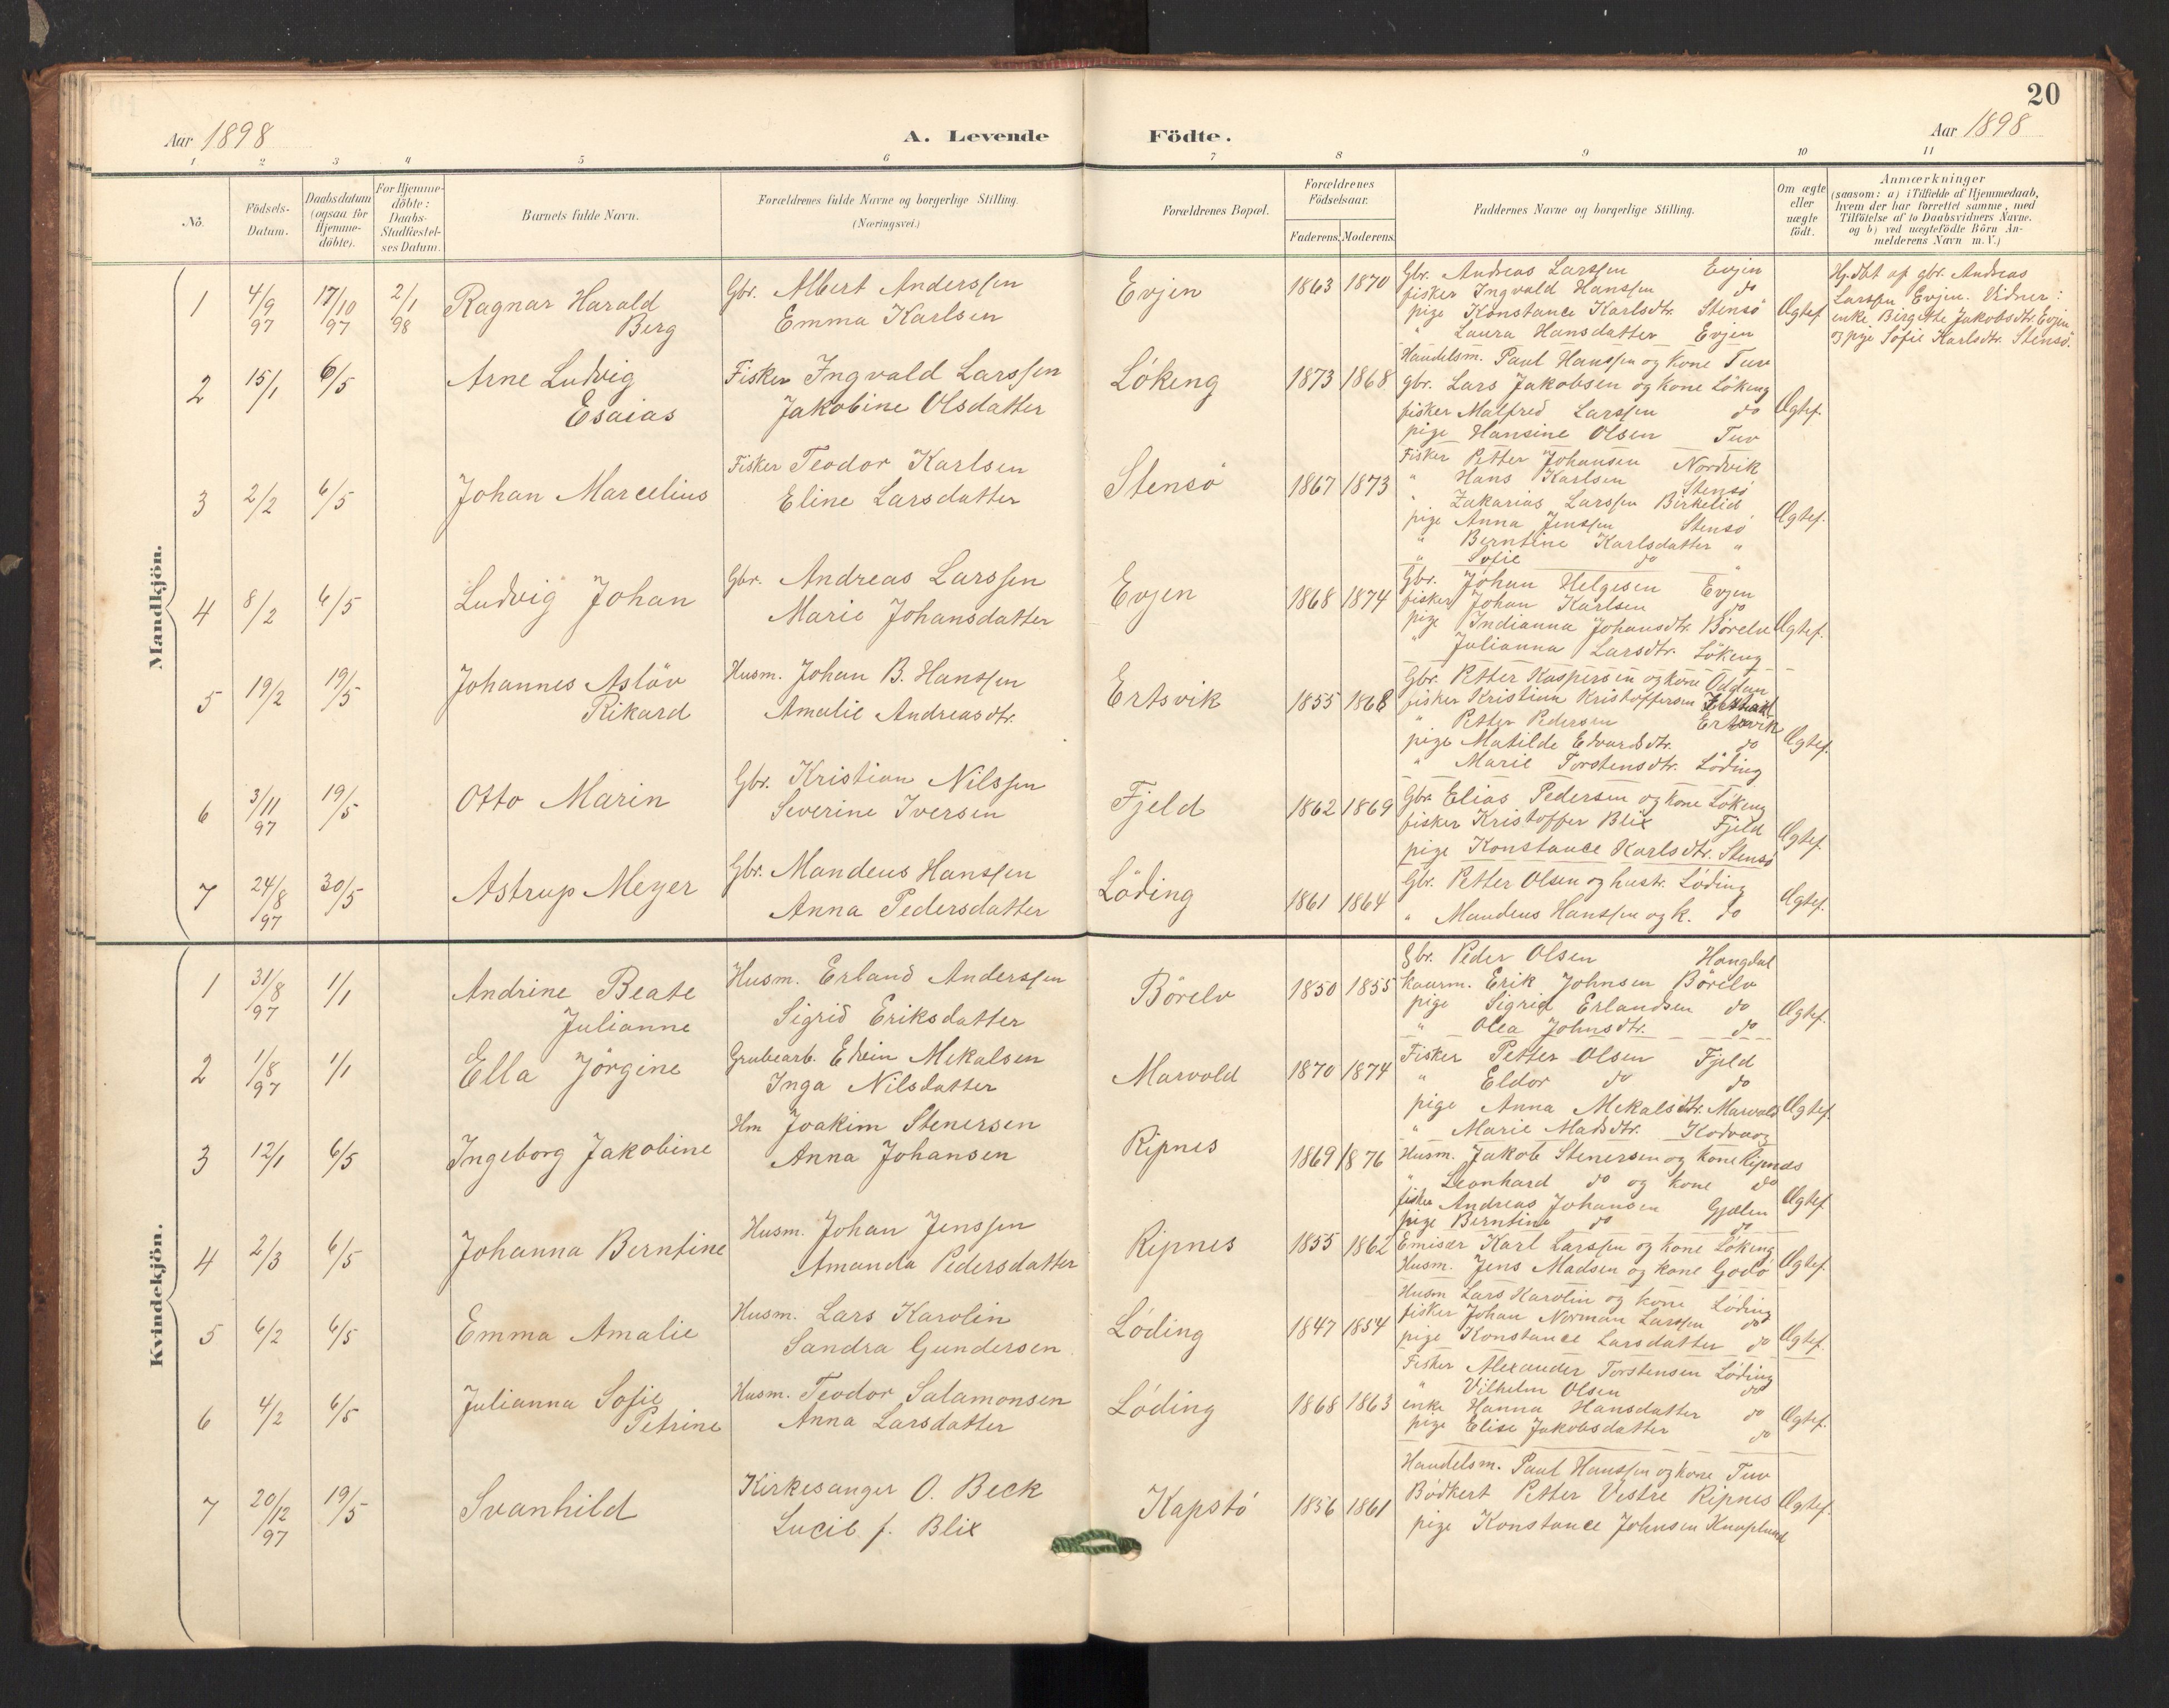 20
Aar 1898
A. Levende
Födte.
Aar 1898
1 2 3 4 5 6 7 8 9 10 11
No.
Födsels-
Datum.
Daabsdatum
(ogsaa for
Hjemme-
döbte).
For Hjemme-
döbte:
Daabs-
Stadfæstel-
ses Datum.
Barnets fulde Navn.
Forældrenes fulde Navne og borgerlige Stilling.
(Næringsvei.)
Forældrenes Bopæl.
Forældrenes
Födselsaar.
Faderens. Moderens.
Faddernes Navne og borgerlige Stilling.
Om ægte
eller
uægte
födt.
Anmærkninger
(saasom: a) i Tilfælde af Hjemmedaab,
hvem der har forrettet samme, med
Tilföielse af to Daabsvidners Navne.
og b) ved uægtefödte Börn An-
melderens Navn m. V.)
Mandkjön.
1 4/9 97 17/10 97 2/1 98
Ragnar Harald
Berg
Gbr. Albert Anderssen
Emma Karlsen
Evjen
1863 1870
Gbr. Andreas Larssen Evjen
fisker Ingvald Hanssen do
pige Konstance Karlsdtr. Stensö
" Laura Hansdatter Evjen
Ægtef
Hj.dbt af gbr. Andreas
Larssen Evjen. Vidner:
enke Birgitte Jakobsdtr. Evjen
og pige Sofie Karlsdtr. Stensö.
2 15/1 6/5
Arne Ludvig
Esaias
Fisker Ingvald Larssen
Jakobine Olsdatter
Lökeng
1873 1868
Handelsm. Paul Hanssen og kone Tuv
gbr. Lars Jakobsen og kone Lökeng
fisker Malfred Larssen do
pige Hansine Olsen Tuv
Ægtef.
3 2/2 6/5
Johan Marcelius
Fisker Teodor Karlsen
Eline Larsdatter
Stensö
1867 1873
Fisker Petter Johansen Nordvik
" Hans Karlsen Stensö
" Zakarias Larssen Birkelid
pige Anna Jenssen Stensö
" Berntine Karlsdatter "
" Sofie do "
Ægtef.
4 8/2 6/5
Ludvig Johan
Gbr. Andreas Larssen
Marie Johansdatter
Evjen
1868 1874
Gbr. Johan Helgesen Evjen
fisker Johan Karlsen do
pige Indianna Johansdtr. Börelv
" Julianna Larsdtr. Lökeng
Ægtef.
5 19/2 19/5
Johannes Aslöv
Rikard
Husm. Johan B. Hanssen
Amalie Andreasdtr.
Ertsvik
1855 1868
Gbr. Petter Kaspersen og kone Oddan
fisker Kristian Kristoffersen
" Petter Pedersen Ertsvik
pige Matilde Edvardsdtr. do
" Marie Torstensdtr. Löding
Ægtef.
6 3/11 97 19/5
Otto Marin
Gbr. Kristian Nilssen
Severine Iversen
Fjeld
1862 1869
Gbr. Elias Pedersen og kone Lökeng
fisker Kristoffer Blix Fjeld
pige Konstance Karlsdtr. Stensö
Ægtef.
7 24/8 97 30/5
Astrup Meyer
Gbr. Mandeus Hanssen
Anna Pedersdatter
Löding
1861 1864
Gbr. Petter Olsen og hustr. Löding
" Mandeus Hanssen og k. do
Ægtef.
Kvindekjön.
1 31/8 97 1/1
Andrine Beate
Julianne
Husm. Erland Anderssen
Sigrid Eriksdatter
Börelv
1850 1855
Gbr. Peder Olsen Hongdal
kaarm. Erik Johnsen Börelv
pige Sigrid Erlandsen do
" Olea Johnsdtr. do
Ægtef.
2 1/8 97 1/1
Ella Jörgine
Grubearb. Edvin Mekalsen
Inga Nilsdatter
Marvold
1870 1874
Fisker Petter Olsen Fjeld
" Eldor do do
pige Anna Mekalsdtr. Marvold
" Marie Madsdtr. Kodvaag
Ægtef.
3 12/1 6/5
Ingeborg Jakobine
Hm Joakim Stenersen
Anna Johansen
Ripnes
1869 1876
Husm. Jakob Stenersen og kone Ripnes
" Leonhard do og kone do
fisker Andreas Johansen Gjælen
pige Berntine do do
Ægtef.
4 2/3 6/5
Johanna Berntine
Husm. Johan Jenssen
Amanda Pedersdatter
Ripnes
1855 1862
Emisær Karl Larssen og kone Lökeng
Husm. Jens Madsen og kone Godö
Ægtef.
5 6/2 6/5
Emma Amalie
Husm. Lars Karolin
Sandra Gundersen
Löding
1847 1854
Husm Lars Karolin og kone Löding
fisker Johan Norman Larssen do
pige Konstance Larsdatter do
Ægtef.
6 4/2 6/5
Julianna Sofie
Petrine
Husm. Teodor Salamonsen
Anna Larsdatter
Löding
1868 1863
Fisker Alexander Torstensen Löding
" Vilhelm Olsen do
enke Hanna Hansdatter do
pige Elise Jakobsdatter do
Ægtef.
7 20/12 97 19/5
Svanhild
Kirkesanger O. Beck
Lucie f. Blix
Kapstö
1856 1861
Handelsm. Paul Hanssen og kone Tuv
Bödkert Petter Vestre Ripnes
pige Konstance Johnsen Knaplund
Ægtef.